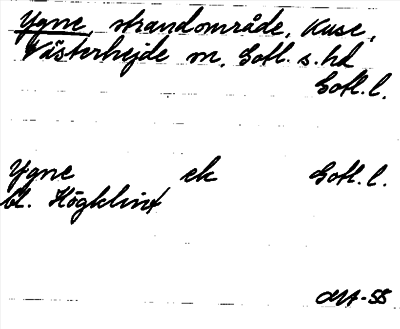 Ygne, strandområde, Kuse,
Västerhejde sn, Gotl. s. hd
Gotl. l.
Ygne ek Gotl. l.
bl. Högklint
-58